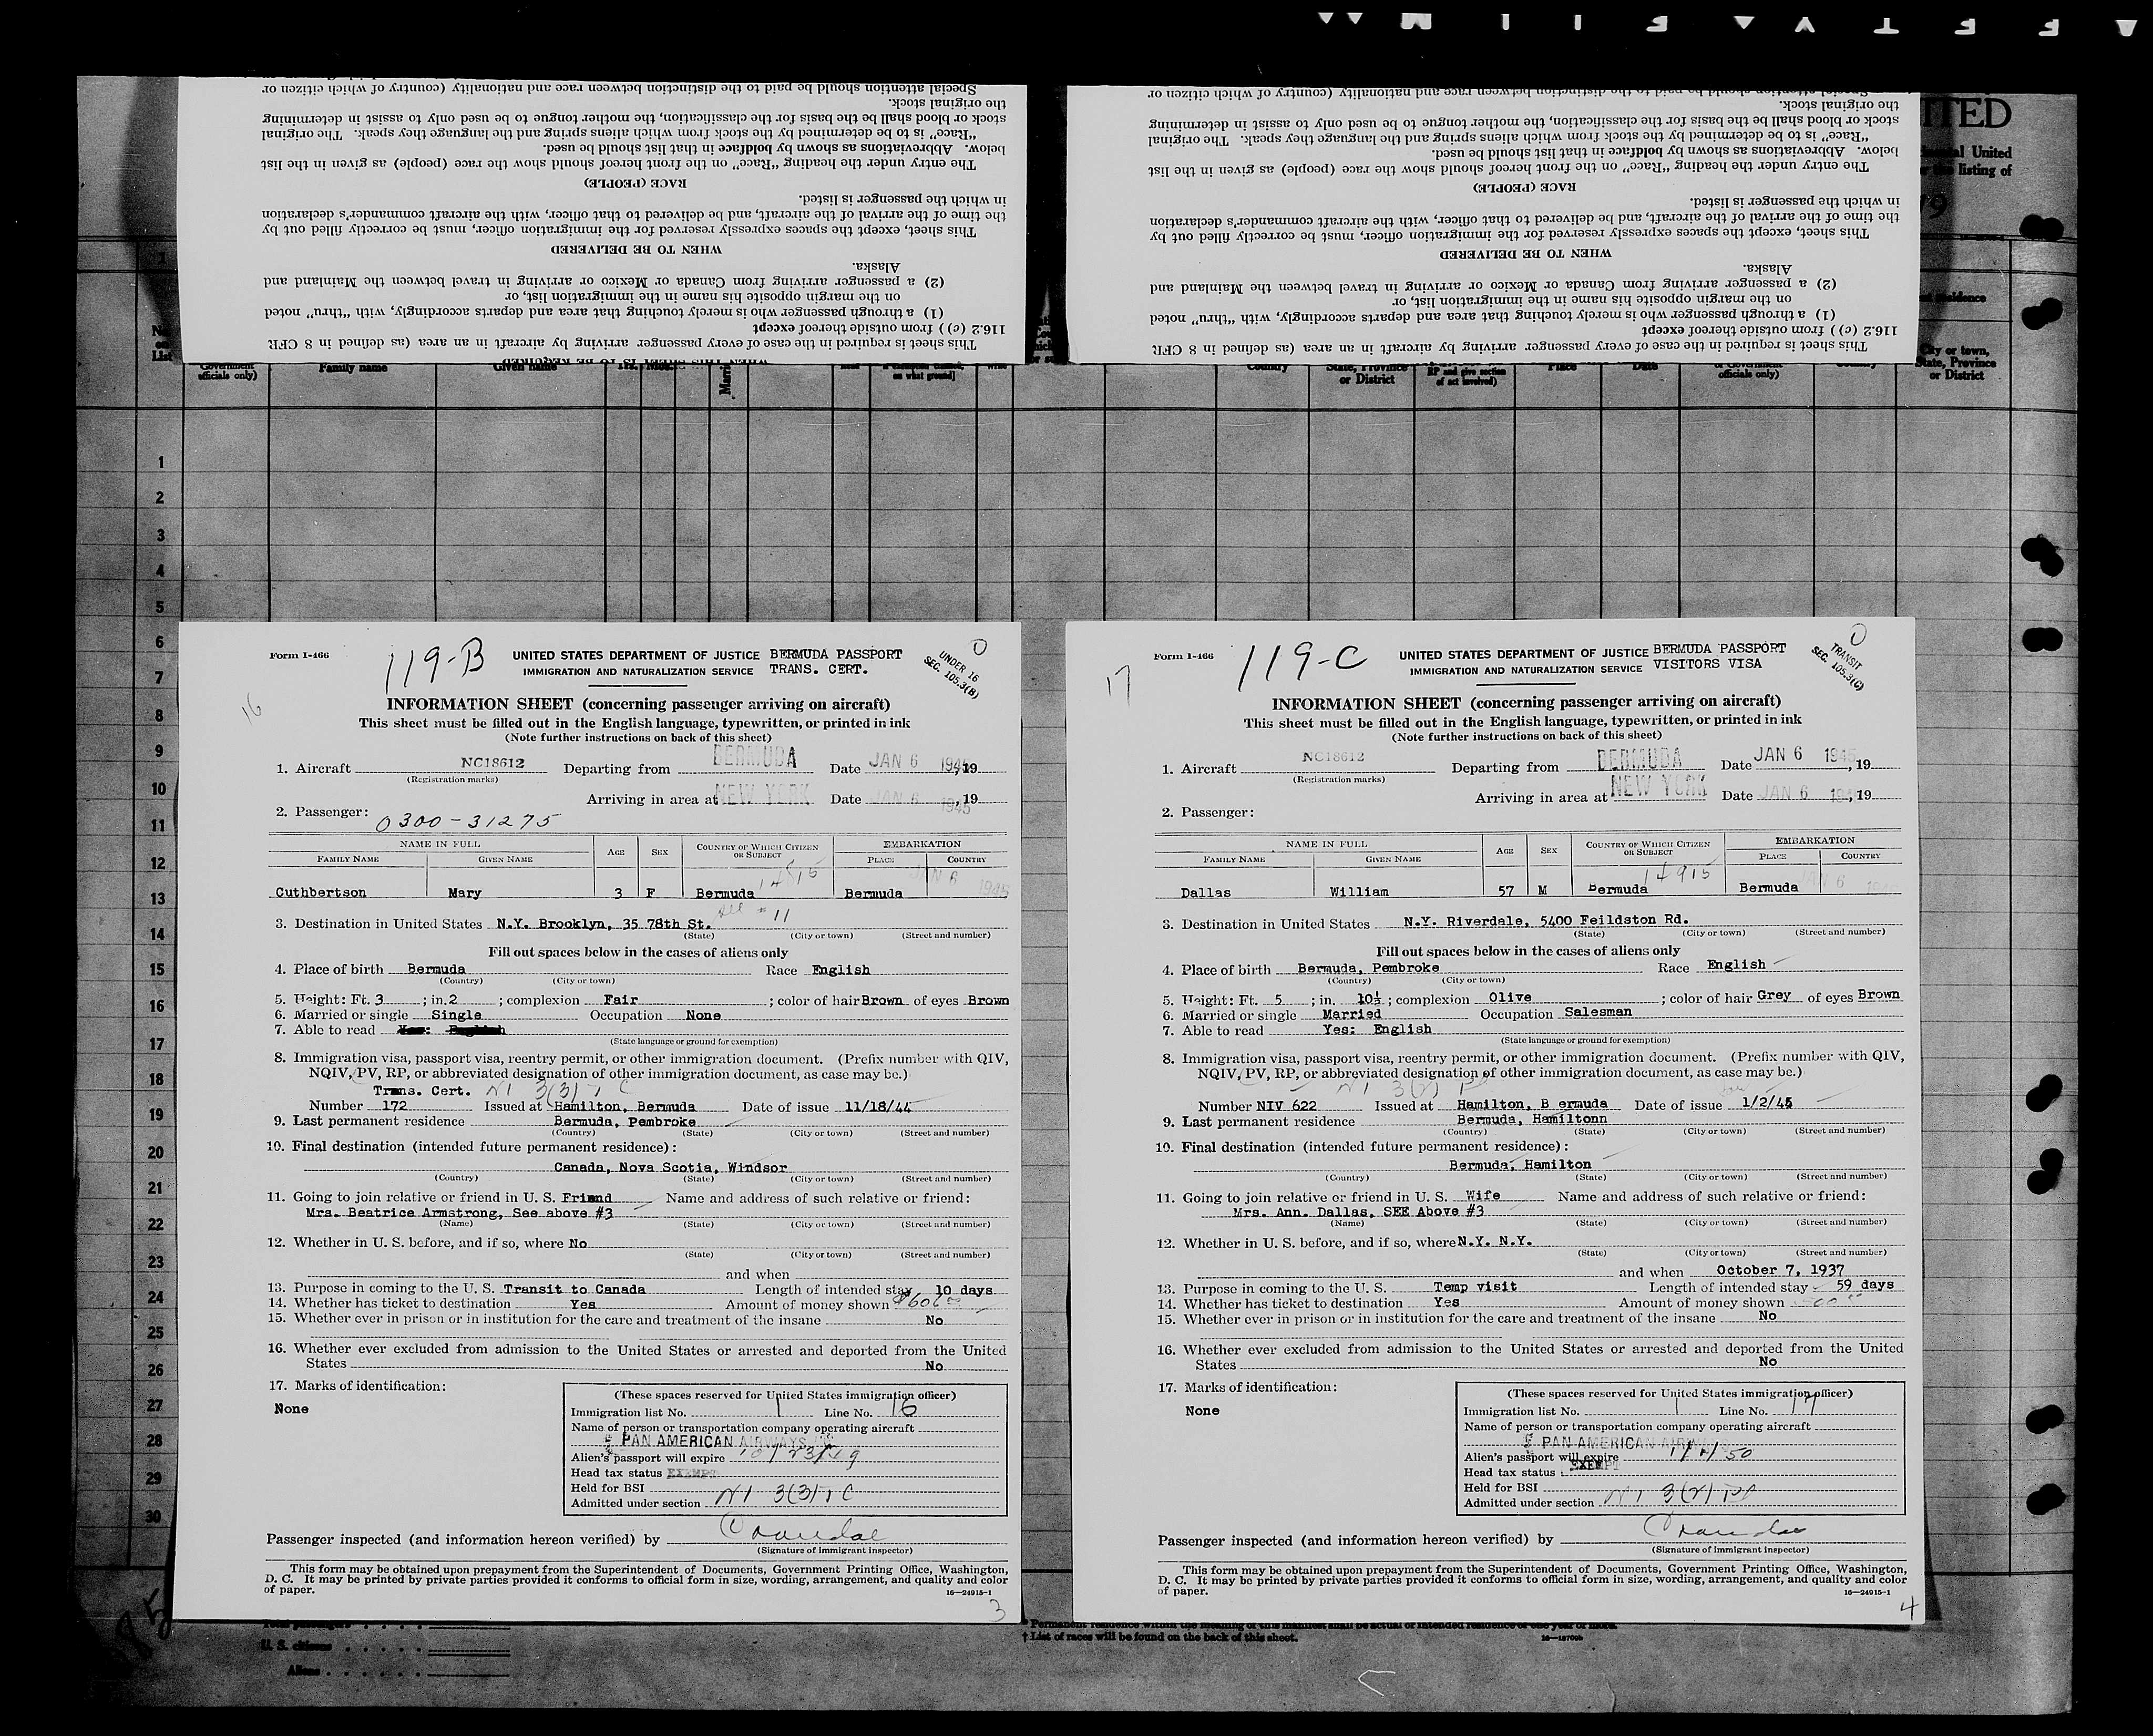 Special attention should be paid to the distinction between race and nationality (country of which citizen or
the original stock.
stock or blood shall be the basis for the classification, the mother tongue to be used only to assist in determining
"Race" is to be determined by the stock from which aliens spring and the language they speak. The original
below. Abbreviations as shown by boldface in that list should be used.
The entry under the heading "Race" on the front hereof should show the race (people) as given in the list
RACE (PEOPLE)
in which the passenger is listed.
the time of the arrival of the aircraft, and be delivered to that officer, with the aircraft commander's declaration
This sheet, except the spaces expressly reserved for the immigration officer, must be correctly filled out by
WHEN TO BE DELIVERED
Alaska.
(2) a passenger arriving from Canada or Mexico or arriving in travel between the Mainland and
on the margin opposite his name in the immigration list, or
(1) a through passenger who is merely touching that area and departs accordingly, with "thru" noted
116.2 (c)) from outside thereof except
This sheet is required in the case of every passenger arriving by aircraft in an area (as defined in 8 CFR
WHEN THIS SHEET IS TO BE REQUIRED
Special attention should be paid to the distinction between race and nationality (country of which citizen or
the original stock.
stock or blood shall be the basis for the classification, the mother tongue to be used only to assist in determining
"Race" is to be determined by the stock from which aliens spring and the language they speak. The original
below. Abbreviations as shown by boldface in that list should be used.
The entry under the heading "Race" on the front hereof should show the race (people) as given in the list
RACE (PEOPLE)
in which the passenger is listed.
the time of the arrival of the aircraft, and be delivered to that officer, with the aircraft commander's declaration
This sheet, except the spaces expressly reserved for the immigration officer, must be correctly filled out by
WHEN TO BE DELIVERED
Alaska.
(2) a passenger arriving from Canada or Mexico or arriving in travel between the Mainland and
on the margin opposite his name in the immigration list, or
(1) a through passenger who is merely touching that area and departs accordingly, with "thru" noted
116.2 (c)) from outside thereof except
This sheet is required in the case of every passenger arriving by aircraft in an area (as defined in 8 CFR
ITED
United
listing of
List
officials only)
Family name
Given name
on what ground]
Country
State, Province
or District
RP and give section
of act involved)
Place
Date
officials only)
City or town,
State, Province
or District
1
2
3
4
5
6
7
8
9
10
11
12
13
14
15
16
17
18
19
20
21
22
23
24
25
26
27
28
29
30
Form I-466
119-B
UNITED STATES DEPARTMENT OF JUSTICE BERMUDA PASSPORT
IMMIGRATION AND NATURALIZATION SERVICE TRANS. CERT.
UNDER 16
SEC. 105.3(B)
16
INFORMATION SHEET (concerning passenger arriving on aircraft)
This sheet must be filled out in the English language, typewritten, or printed in ink
(Note further instructions on back of this sheet)
1. Aircraft NC18612 Departing from BERMUDA Date JAN 6 1945, 19
(Registration marks)
Arriving in area at NEW YORK Date JAN 6 1945, 19
2. Passenger: 0300-31275
NAME IN FULL AGE SEX COUNTRY OF WHICH CITIZEN OR SUBJECT EMBARKATION
FAMILY NAME GIVEN NAME PLACE COUNTRY
Cuthbertson Mary 3 F Bermuda Bermuda JAN 6 1945
3. Destination in United States N.Y. Brooklyn, 35 78th St. #11
(State) (City or town) (Street and number)
Fill out spaces below in the cases of aliens only
4. Place of birth Bermuda Race English
(Country) (City or town)
5. Height: Ft. 3 ; in. 2 ; complexion Fair ; color of hair Brown of eyes Brown
6. Married or single Single Occupation None
7. Able to read
(State language or ground for exemption)
8. Immigration visa, passport visa, reentry permit, or other immigration document. (Prefix number with QIV,
NQIV, PV, RP, or abbreviated designation of other immigration document, as case may be.)
Trans. Cert. NI 3(3) TC
Number 172 Issued at Hamilton, Bermuda Date of issue 11/18/44
9. Last permanent residence Bermuda, Pembroke
(Country) (State) (City or town) (Street and number)
10. Final destination (intended future permanent residence):
Canada, Nova Scotia, Windsor
(Country) (State) (City or town) (Street and number)
11. Going to join relative or friend in U. S. Friend Name and address of such relative or friend:
Mrs. Beatrice Armstrong, See above #3
(Name) (State) (City or town) (Street and number)
12. Whether in U. S. before, and if so, where No
(State) (City or town) (Street and number)
and when
13. Purpose in coming to the U. S. Transit to Canada Length of intended stay 10 days
14. Whether has ticket to destination Yes Amount of money shown $606
15. Whether ever in prison or in institution for the care and treatment of the insane No
16. Whether ever excluded from admission to the United States or arrested and deported from the United
States No
17. Marks of identification:
None
(These spaces reserved for United States immigration officer)
Immigration list No. 1 Line No. 16
Name of person or transportation company operating aircraft
PAN AMERICAN AIRWAYS
Alien's passport will expire 10/23/49
Head tax status EXEMPT
Held for BSI
Admitted under section NI 3(3) TC
Passenger inspected (and information hereon verified) by
(Signature of immigrant inspector)
This form may be obtained upon prepayment from the Superintendent of Documents, Government Printing Office, Washington,
D. C. It may be printed by private parties provided it conforms to official form in size, wording, arrangement, and quality and color
of paper.
16—24915-1
3
Form I-466
119-C
UNITED STATES DEPARTMENT OF JUSTICE BERMUDA PASSPORT
IMMIGRATION AND NATURALIZATION SERVICE VISITORS VISA
TRANSIT
SEC. 105.3(C)
17
INFORMATION SHEET (concerning passenger arriving on aircraft)
This sheet must be filled out in the English language, typewritten, or printed in ink
(Note further instructions on back of this sheet)
1. Aircraft NC18612 Departing from BERMUDA Date JAN 6 1945, 19
(Registration marks)
Arriving in area at NEW YORK Date JAN 6 1945, 19
2. Passenger:
NAME IN FULL AGE SEX COUNTRY OF WHICH CITIZEN OR SUBJECT EMBARKATION
FAMILY NAME GIVEN NAME PLACE COUNTRY
14915
Dallas William 57 M Bermuda Bermuda
3. Destination in United States N.Y. Riverdale, 5400 Feildston Rd.
(State) (City or town) (Street and number)
Fill out spaces below in the cases of aliens only
4. Place of birth Bermuda, Pembroke Race English
(Country) (City or town)
5. Height: Ft. 5 ; in. 10½ ; complexion Olive ; color of hair Grey of eyes Brown
6. Married or single Married Occupation Salesman
7. Able to read Yes: English
(State language or ground for exemption)
8. Immigration visa, passport visa, reentry permit, or other immigration document. (Prefix number with QIV,
NQIV, PV, RP, or abbreviated designation of other immigration document, as case may be.)
Number NIV 622 Issued at Hamilton, B ermuda Date of issue 1/2/45
9. Last permanent residence Bermuda, Hamiltonn
(Country) (State) (City or town) (Street and number)
10. Final destination (intended future permanent residence):
Bermuda, Hamilton
(Country) (State) (City or town) (Street and number)
11. Going to join relative or friend in U. S. Wife Name and address of such relative or friend:
Mrs. Ann. Dallas, SEE Above #3
(Name) (State) (City or town) (Street and number)
12. Whether in U. S. before, and if so, where N.Y. N.Y.
(State) (City or town) (Street and number)
and when October 7, 1937
13. Purpose in coming to the U. S. Temp visit Length of intended stay 59 days
14. Whether has ticket to destination Yes Amount of money shown
15. Whether ever in prison or in institution for the care and treatment of the insane No
16. Whether ever excluded from admission to the United States or arrested and deported from the United
States No
17. Marks of identification:
None
(These spaces reserved for United States immigration officer)
Immigration list No. 1 Line No. 17
Name of person or transportation company operating aircraft
PAN AMERICAN AIRWAYS
Alien's passport will expire
Head tax status EXEMPT
Held for BSI
Admitted under section NI 3(2)
Passenger inspected (and information hereon verified) by
(Signature of immigrant inspector)
This form may be obtained upon prepayment from the Superintendent of Documents, Government Printing Office, Washington,
D. C. It may be printed by private parties provided it conforms to official form in size, wording, arrangement, and quality and color
of paper.
16—24915-1
4
U. S. citizens
Aliens
† List of races will be found on the back of this sheet.